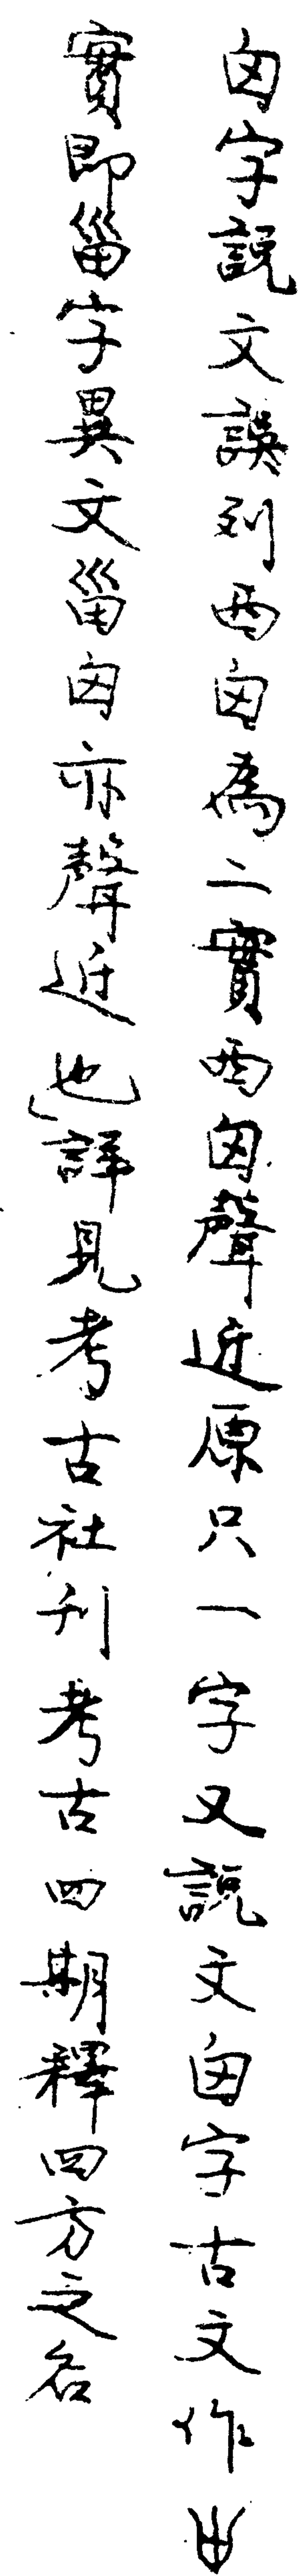 囟字説文誤列西囟為二實西囟聲近原只一字又説文囟字古文作𠙹
實即甾字異文甾囟亦聲近也詳見考古社刊考古四期釋四方之名